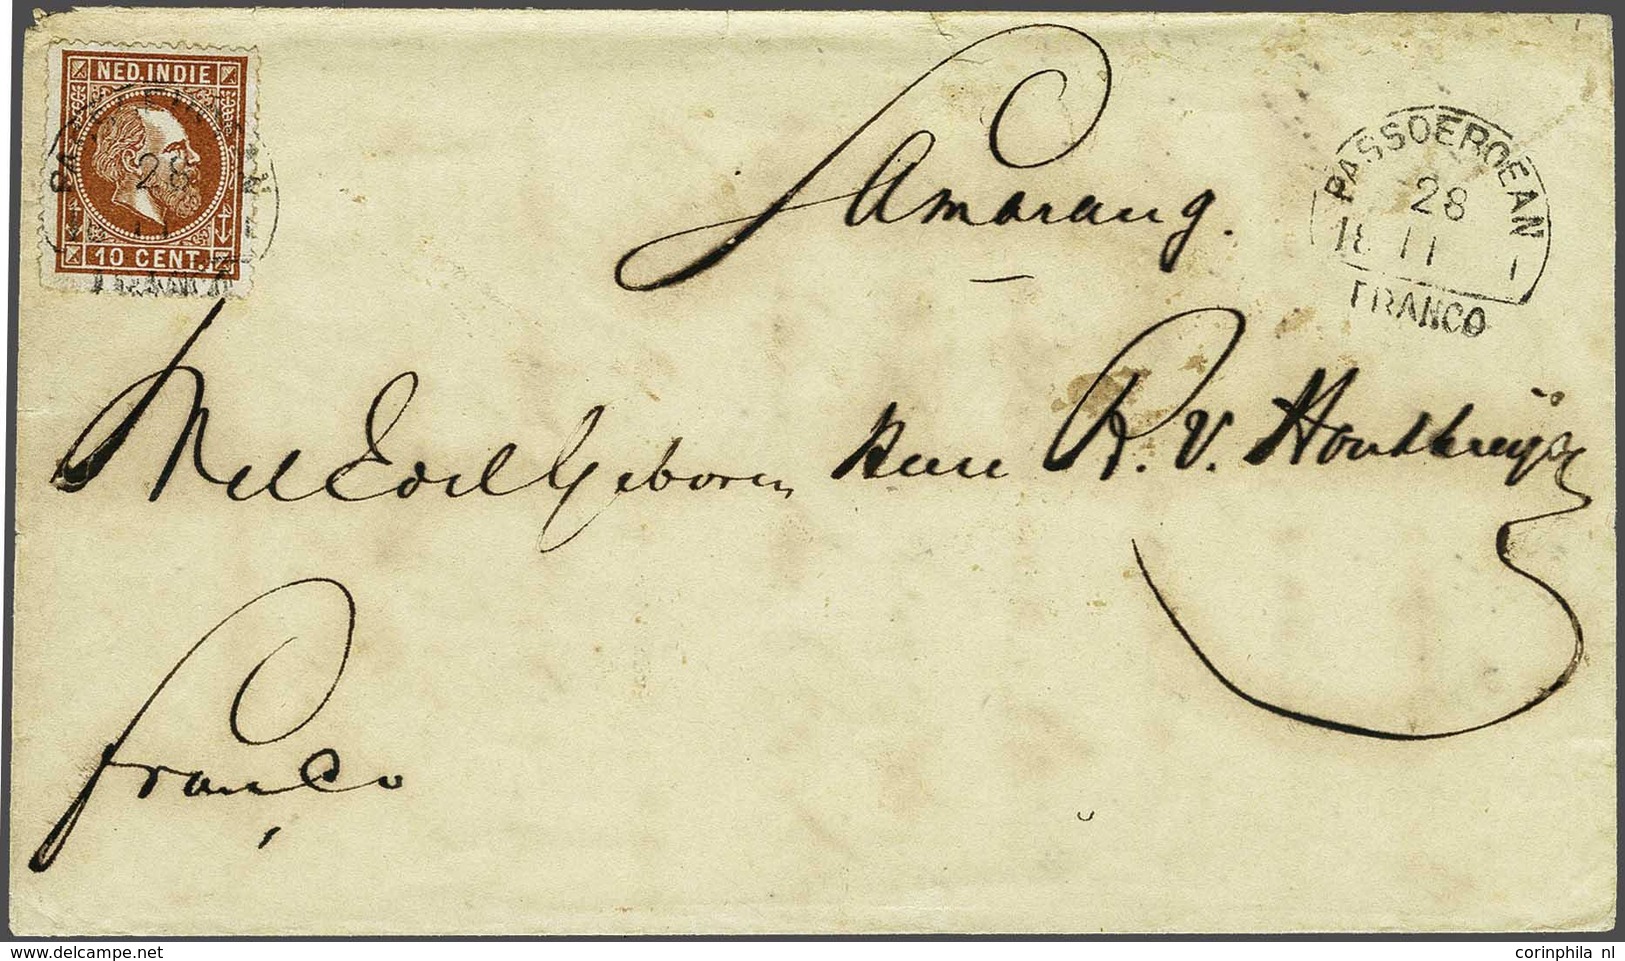 NED. INDIE
10 CENT.
28
FRANCO
Samarang.
PASSOEROEAN
28
18 11 1
FRANCO
Wel Edel Geboren Heer R. V. Houtkruijer
franco
delcampe.net
corinphila nl